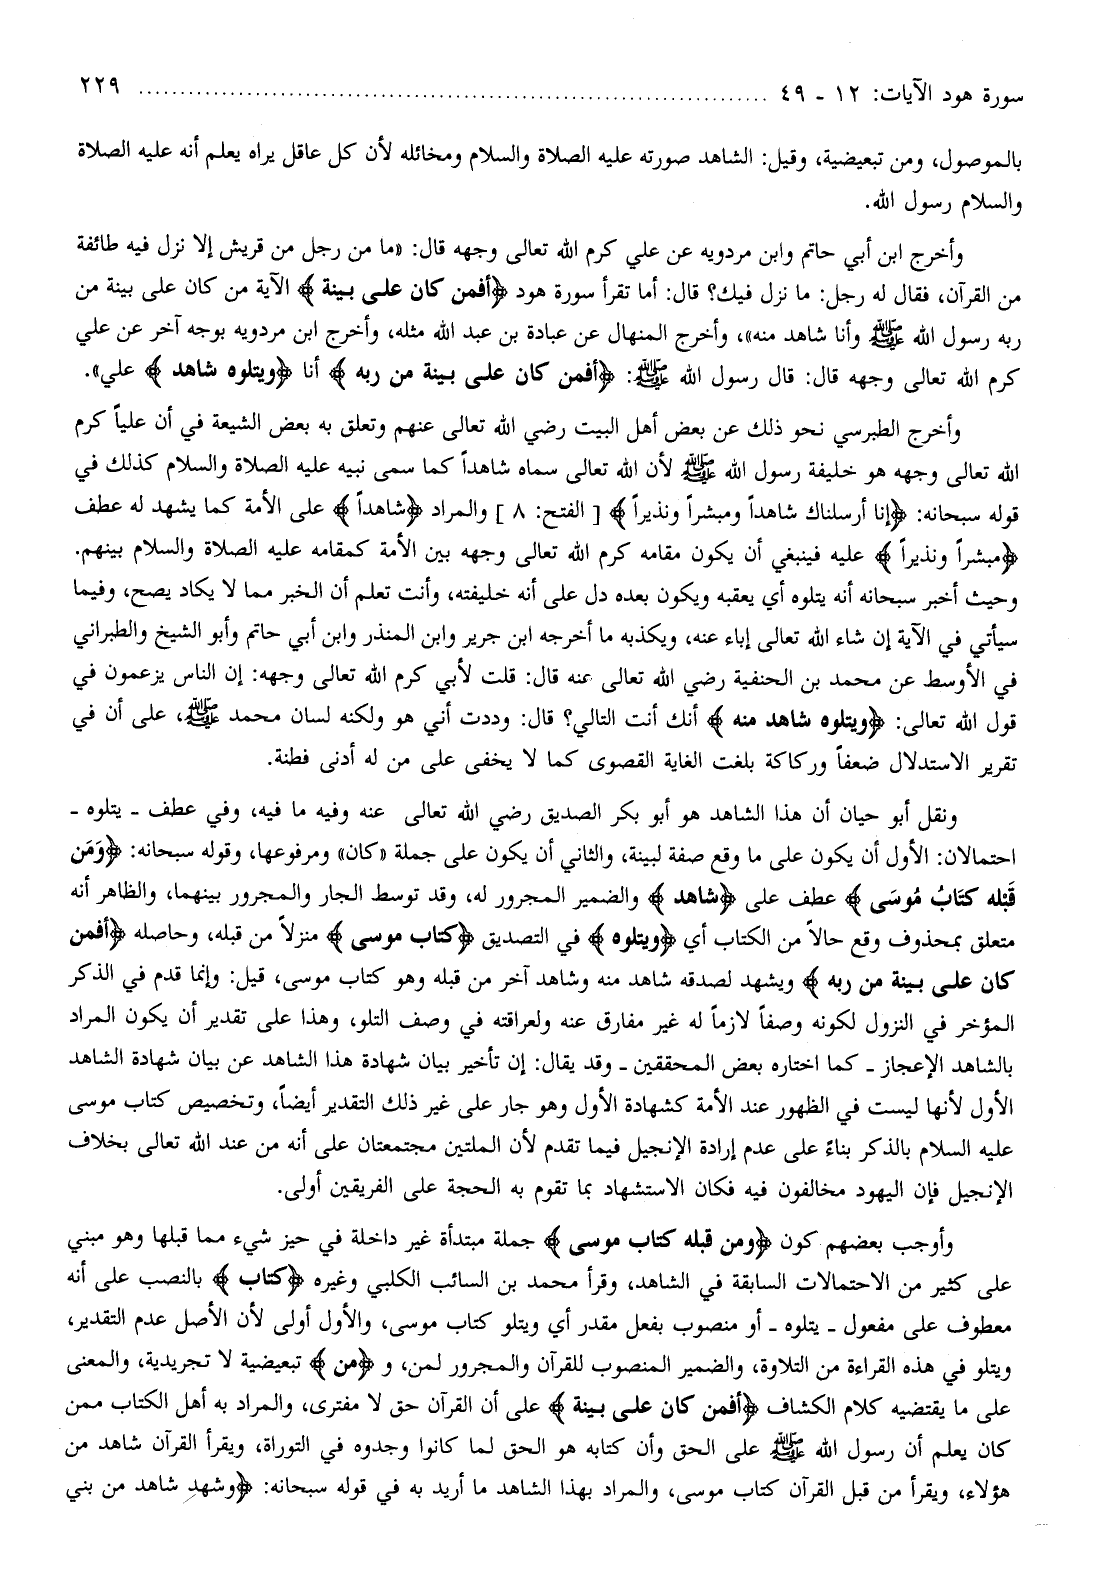 سورة هود الآيات: ١٢ ـ ٤٩ ........................................................................ ٢٢٩
بالموصول، ومن تبعيضية، وقيل: الشاهد صورته عليه الصلاة والسلام ومخائله لأن كل عاقل يراه يعلم أنه عليه الصلاة
والسلام رسول الله.
وأخرج ابن أبي حاتم وابن مردويه عن علي كرم الله تعالى وجهه قال: «ما من رجل من قريش إلا نزل فيه طائفة
من القرآن، فقال له رجل: ما نزل فيك؟ قال: أما تقرأ سورة هود ﴿أفمن كان على بينة﴾ الآية من كان على بينة من
ربه رسول الله ﷺ وأنا شاهد منه»، وأخرج المنهال عن عبادة بن عبد الله مثله، وأخرج ابن مردويه بوجه آخر عن علي
كرم الله تعالى وجهه قال: قال رسول الله ﷺ: ﴿أفمن كان على بينة من ربه﴾ أنا ﴿ويتلوه شاهد﴾ علي».
وأخرج الطبرسي نحو ذلك عن بعض أهل البيت رضي الله تعالى عنهم وتعلق به بعض الشيعة في أن علياً كرم
الله تعالى وجهه هو خليفة رسول الله ﷺ لأن الله تعالى سماه شاهداً كما سمى نبيه عليه الصلاة والسلام كذلك في
قوله سبحانه: ﴿إنا أرسلناك شاهداً ومبشراً ونذيراً﴾ [ الفتح: ٨ ] والمراد ﴿شاهداً﴾ على الأمة كما يشهد له عطف
﴿مبشراً ونذيراً﴾ عليه فينبغي أن يكون مقامه كرم الله تعالى وجهه بين الأمة كمقامه عليه الصلاة والسلام بينهم.
وحيث أخبر سبحانه أنه يتلوه أي يعقبه ويكون بعده دل على أنه خليفته، وأنت تعلم أن الخبر مما لا يكاد يصح، وفيما
سيأتي في الآية إن شاء الله تعالى إباء عنه، ويكذبه ما أخرجه ابن جرير وابن المنذر وابن أبي حاتم وأبو الشيخ والطبراني
في الأوسط عن محمد بن الحنفية رضي الله تعالى عنه قال: قلت لأبي كرم الله تعالى وجهه: إن الناس يزعمون في
قول الله تعالى: ﴿ويتلوه شاهد منه﴾ أنك أنت التالي؟ قال: وددت أني هو ولكنه لسان محمد ﷺ، على أن في
تقرير الاستدلال ضعفاً وركاكة بلغت الغاية القصوى كما لا يخفى على من له أدنى فطنة.
ونقل أبو حيان أن هذا الشاهد هو أبو بكر الصديق رضي الله تعالى عنه وفيه ما فيه، وفي عطف ـ يتلوه ـ
احتمالان: الأول أن يكون على ما وقع صفة لبينة، والثاني أن يكون على جملة «كان» ومرفوعها، وقوله سبحانه: ﴿وَمَن
قَبْله كتَابُ مُوسَى﴾ عطف على ﴿شاهد﴾ والضمير المجرور له، وقد توسط الجار والمجرور بينهما، والظاهر أنه
متعلق بمحذوف وقع حالاً من الكتاب أي ﴿ويتلوه﴾ في التصديق ﴿كتاب موسى﴾ منزلاً من قبله، وحاصله ﴿أفمن
كان على بينة من ربه﴾ ويشهد لصدقه شاهد منه وشاهد آخر من قبله وهو كتاب موسى، قيل: وإنما قدم في الذكر
المؤخر في النزول لكونه وصفاً لازماً له غير مفارق عنه ولعراقته في وصف التلو، وهذا على تقدير أن يكون المراد
بالشاهد الإعجاز ـ كما اختاره بعض المحققين ـ وقد يقال: إن تأخير بيان شهادة هذا الشاهد عن بيان شهادة الشاهد
الأول لأنها ليست في الظهور عند الأمة كشهادة الأول وهو جار على غير ذلك التقدير أيضاً، وتخصيص كتاب موسى
عليه السلام بالذكر بناءً على عدم إرادة الإنجيل فيما تقدم لأن الملتين مجتمعتان على أنه من عند الله تعالى بخلاف
الإنجيل فإن اليهود مخالفون فيه فكان الاستشهاد بما تقوم به الحجة على الفريقين أولى.
وأوجب بعضهم كون ﴿ومن قبله كتاب موسى﴾ جملة مبتدأة غير داخلة في حيز شيء مما قبلها وهو مبني
على كثير من الاحتمالات السابقة في الشاهد، وقرأ محمد بن السائب الكلبي وغيره ﴿كتاب﴾ بالنصب على أنه
معطوف على مفعول ـ يتلوه ـ أو منصوب بفعل مقدر أي ويتلو كتاب موسى، والأول أولى لأن الأصل عدم التقدير،
ويتلو في هذه القراءة من التلاوة، والضمير المنصوب للقرآن والمجرور لمن، و ﴿من﴾ تبعيضية لا تجريدية، والمعنى
على ما يقتضيه كلام الكشاف ﴿أفمن كان على بينة﴾ على أن القرآن حق لا مفترى، والمراد به أهل الكتاب ممن
كان يعلم أن رسول الله ﷺ على الحق وأن كتابه هو الحق لما كانوا وجدوه في التوراة، ويقرأ القرآن شاهد من
هؤلاء، ويقرأ من قبل القرآن كتاب موسى، والمراد بهذا الشاهد ما أريد به في قوله سبحانه: ﴿وشهد شاهد من بني